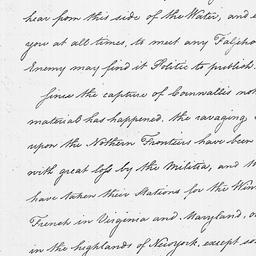 hear from this side of the Water, and e
you at all times, to meet any Falseho
Enemy may find it Politic to publish.
Since the capture of Cornwallis not
material has happened. the ravaging
upon the Nothern Frontiers have been
with great loss by the Militia, and
have taken their Stations for the Win
French in Virginia and Maryland, o
in the highlands of Newyork, except so